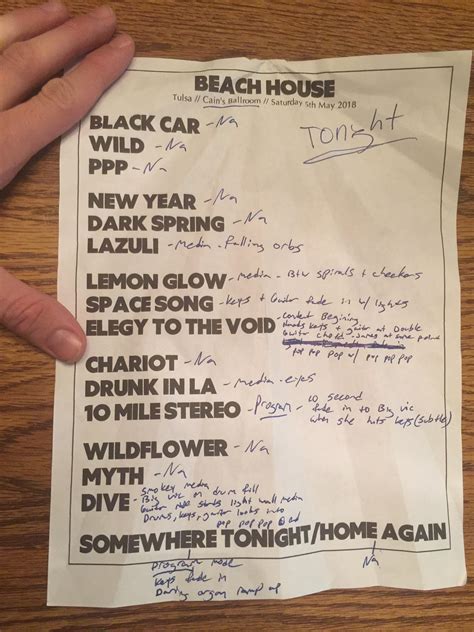 BEACH HOUSE
Tulsa // Cain's Ballroom // Saturday 5th May 2018
Tonight
BLACK CAR - Na
WILD - Na
PPP - Na
NEW YEAR - Na
DARK SPRING - Na
LAZULI - media - falling orbs
LEMON GLOW - media - B+W spirals + checkers
SPACE SONG - keys + Guitar fade in w/ lights
ELEGY TO THE VOID - Begining
keys + guitar at Double
Guitar
pop pop pop w/ pop pop pop
CHARIOT - Na
DRUNK IN LA - media - eyes
10 MILE STEREO - Program - 10 second
fade in to Big vic
when she hits keys (subtle)
WILDFLOWER - Na
MYTH - Na
DIVE - smokey media
- Big vic on drum fill
Guitar starts light wall media
Drums, keys, guitar looks into
pop pop pop @ end
SOMEWHERE TONIGHT/HOME AGAIN
Program mode
Na
keys fade in
During organ ramp up